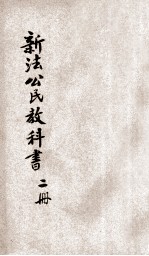 新法公民教科書二冊